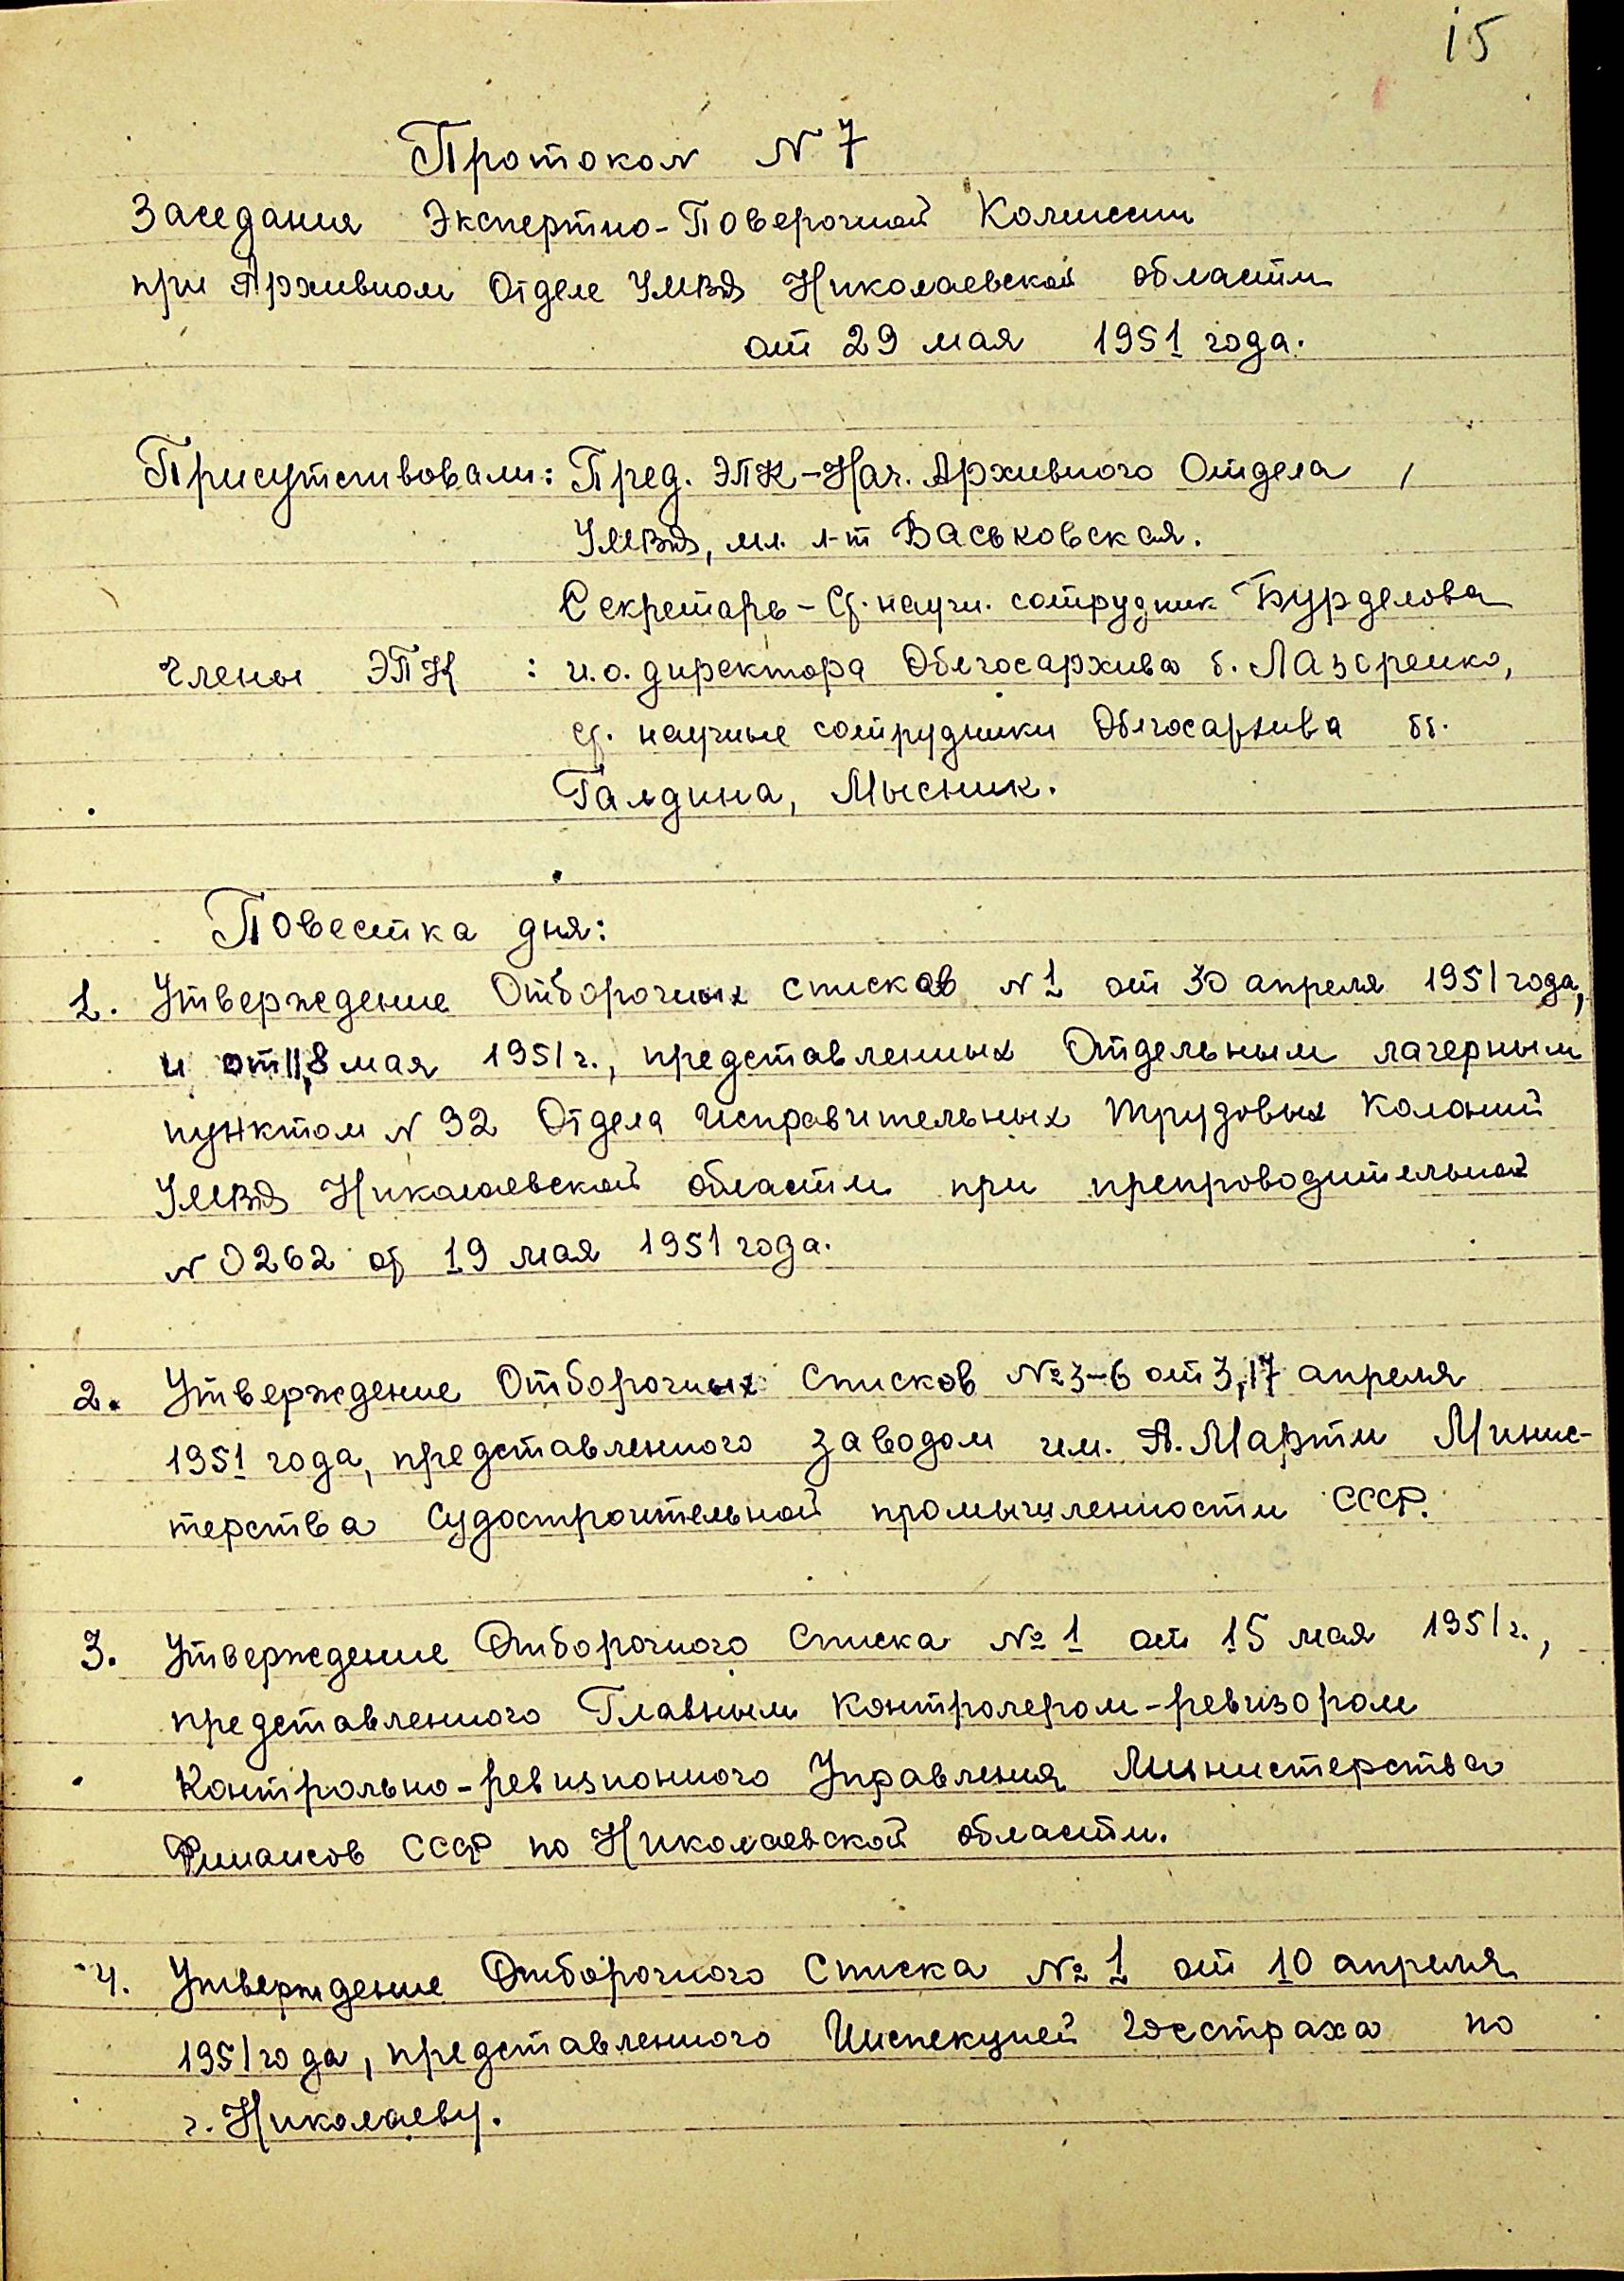 15
Протокол N 7
Заседания Экспертно-Поверочной Комиссии
при Архивном Отделе УМВД Николаевской области
от 29 мая 1951 года.
Присутствовали: Пред. ЭПК-Нач. Архивного Отдела
УМВД, мл. л-т Васьковская.
Секретарь - Ст. научн. сотрудник Бурделова
Члены ЭПК : и.о. директора Облгосархива т. Лазоренко,
ст. научные сотрудники Облгосархива тт.
Галдина, Мысник.
Повестка дня:
1. Утверждение Отборочных списков N 1 от 30 апреля 1951 года,
и от 11,8 мая 1951 г., представленных Отдельным лагерным
пунктом N 92 Отдела Исправительных Трудовых Колоний
УМВД Николаевской области при препроводительной
N 0262 от 19 мая 1951 года.
2. Утверждение Отборочных Списков № 3-6 от 3,17 апреля
1951 года, представленного заводом им. А. Марти Минис-
терства Судостроительной промышленности СССР.
3. Утверждение Отборочного Списка № 1 от 15 мая 1951 г.,
представленного Главным Контролером-ревизором
Контрольно-ревизионного Управления Министерства
Финансов СССР по Николаевской области.
4. Утверждение Отборочного Списка № 1 от 10 апреля
1951 года, представленного Инспекцией Госстраха по
г. Николаеву.